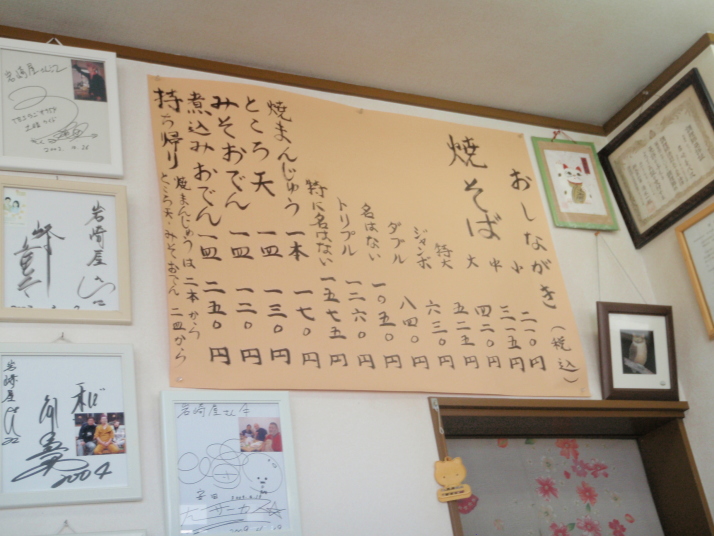 おしながき(税込)
焼そば
小 二一〇円
中 三一五円
大 四二〇円
特大 五二五円
ジャンボ 六三〇円
ダブル 八四〇円
名はない 一〇五〇円
トリプル 一二六〇円
特に名はない 一五七五円
焼まんじゅう 一本 一七〇円
ところ天 一皿 一三〇円
みそおでん 一皿 一二〇円
煮込みおでん 一皿 二五〇円
持ち帰り 焼まんじゅうは二本から
ところ天・みそおでん 二皿から
岩崎屋さん江
岩崎屋
岩崎屋
2004
岩崎屋さん江